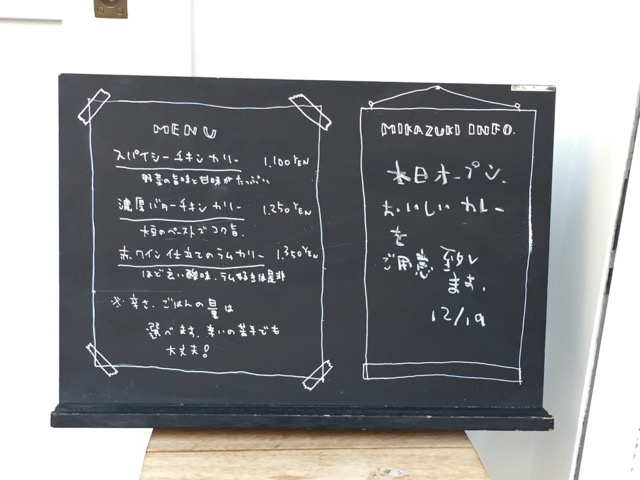 MENU
スパイシーチキンカリー 1.100YEN
野菜の旨味と甘味がたっぷり
濃厚バターチキンカリー 1.250YEN
大豆のペーストでコク旨。
赤ワイン仕立てのラムカリー 1.350YEN
ほど良い酸味。ラム好きは是非
※辛さ、ごはんの量は
選べます。辛いの苦手でも
大丈夫!
MIKAZUKI INFO.
本日オープン。
おいしいカレー
を
ご用意致し
ます。
12/19